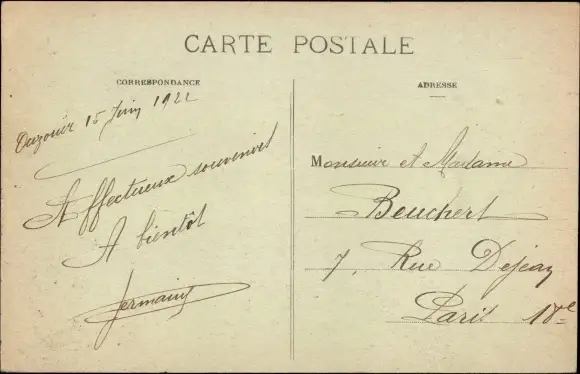 CARTE POSTALE
CORRESPONDANCE
ADRESSE
Ouzouer 15 Juin 1922
Affectueux souvenirs
A bientôt
Germaine
Monsieur et Madame
Beuchert
7, Rue Dejean
Paris 18e